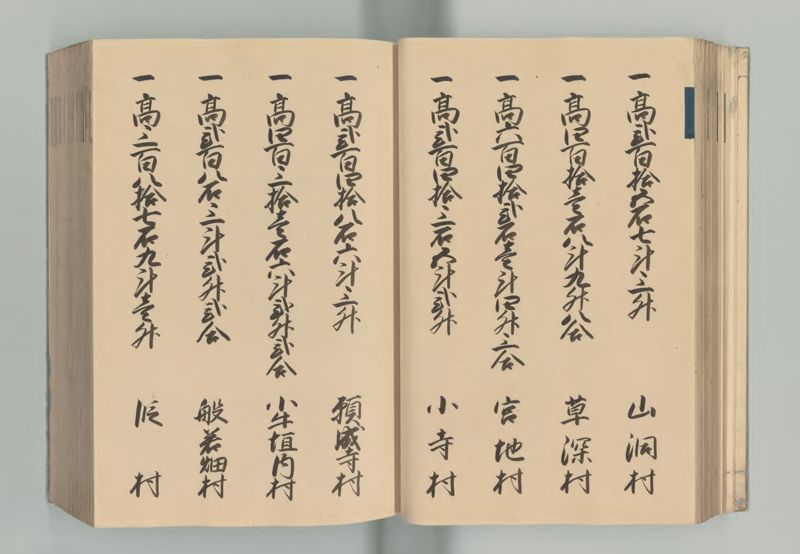 一高弐百拾五石七斗三升 山洞村
一高四百拾壱石八斗九升八合 草深村
一高六百四拾弐石壱斗四升三合 宮地村
一高弐百四拾三石五斗弐升 小寺村
一高弐百四拾八石六斗三升 願成寺村
一高四百三拾壱石六斗弐升弐合 小牛垣内村
一高弐百八石三斗弐升弐合 般若畑村
一高三百八拾七石九斗壱升 段村